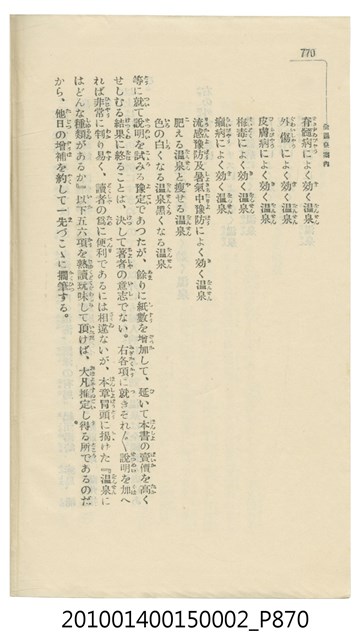 770
全國温泉案内
脊髓病によく効く温泉
外傷によく効く温泉
皮膚病によく効く温泉
梅毒によく効く温泉
癩病によく効く温泉
流感豫防及暑氣中豫防によく効く温泉
肥える温泉と瘦せる温泉
色の白くなる温泉黑くなる温泉
等に就て說明を試みる豫定であつたが、餘りに紙數を增加して、延いて本書の賣價を高く
せしむる結果に終ることは、決して著者の意志でない。右各項に就きそれ〲說明を加へ
れば非常に判り易く、讀者の爲に便利であるには相違ないが、本章冒頭に揭けた『温泉に
はどんな種類があるか』以下五六項を熟讀玩味して頂けば、大凡推定し得る所であるのだ
から、他日の增補を約して一先づこゝに擱筆する。
201001400150002_P870